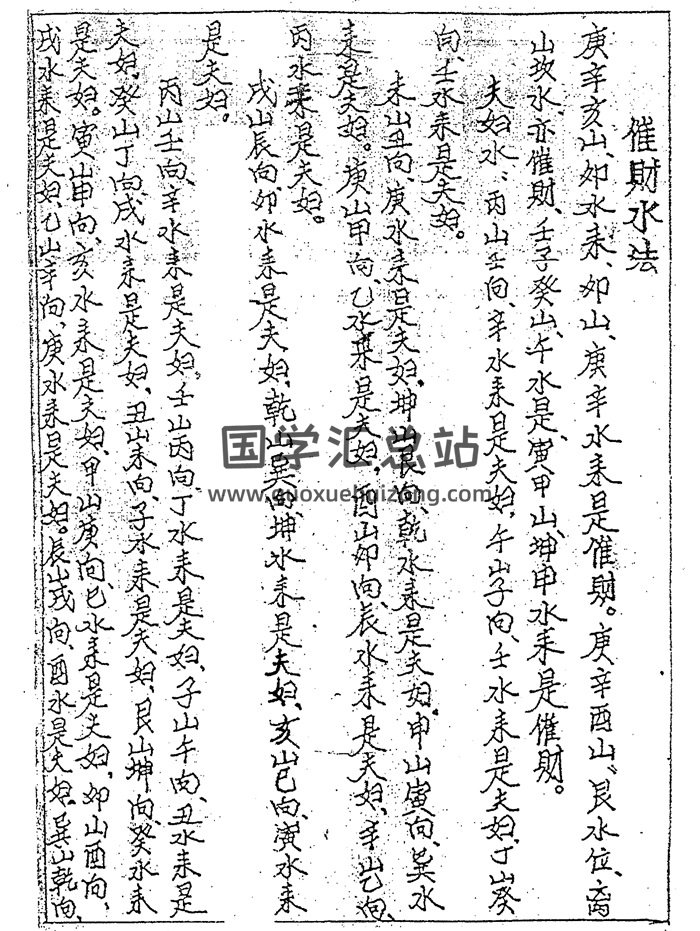 催財水法
庚辛亥山、卯水来、卯山、庚辛水来是催财。庚辛酉山、艮水位、离
山坎水、亦催财、壬子癸山、午水是、寅甲山、坤申水来是催财。
夫妇水：丙山壬向、辛水来是夫妇、午山子向、壬水来是夫妇、丁山癸
向、壬水来是夫妇。
未山丑向、庚水来是夫妇、坤山艮向、乾水来是夫妇。申山寅向、巽水
来是夫妇。庚山甲向、乙水来是夫妇、酉山卯向、辰水来是夫妇、辛山乙向、
丙水来是夫妇。
戌山辰向、卯水来是夫妇、乾山巽向、坤水来是夫妇、亥山巳向、寅水来
是夫妇。
丙山壬向、辛水来是夫妇、壬山丙向、丁水来是夫妇、子山午向、丑水来是
夫妇、癸山丁向、戌水来是夫妇、丑山未向、子水来是夫妇、艮山坤向、癸水来
是夫妇。寅山申向、亥水来是夫妇、甲山庚向、巳水来是夫妇、卯山酉向、
戌水来是夫妇、乙山辛向、庚水来是夫妇。辰山戌向、酉水是夫妇、巽山乾向、
国学汇总站
www.guoxuehuizong.com